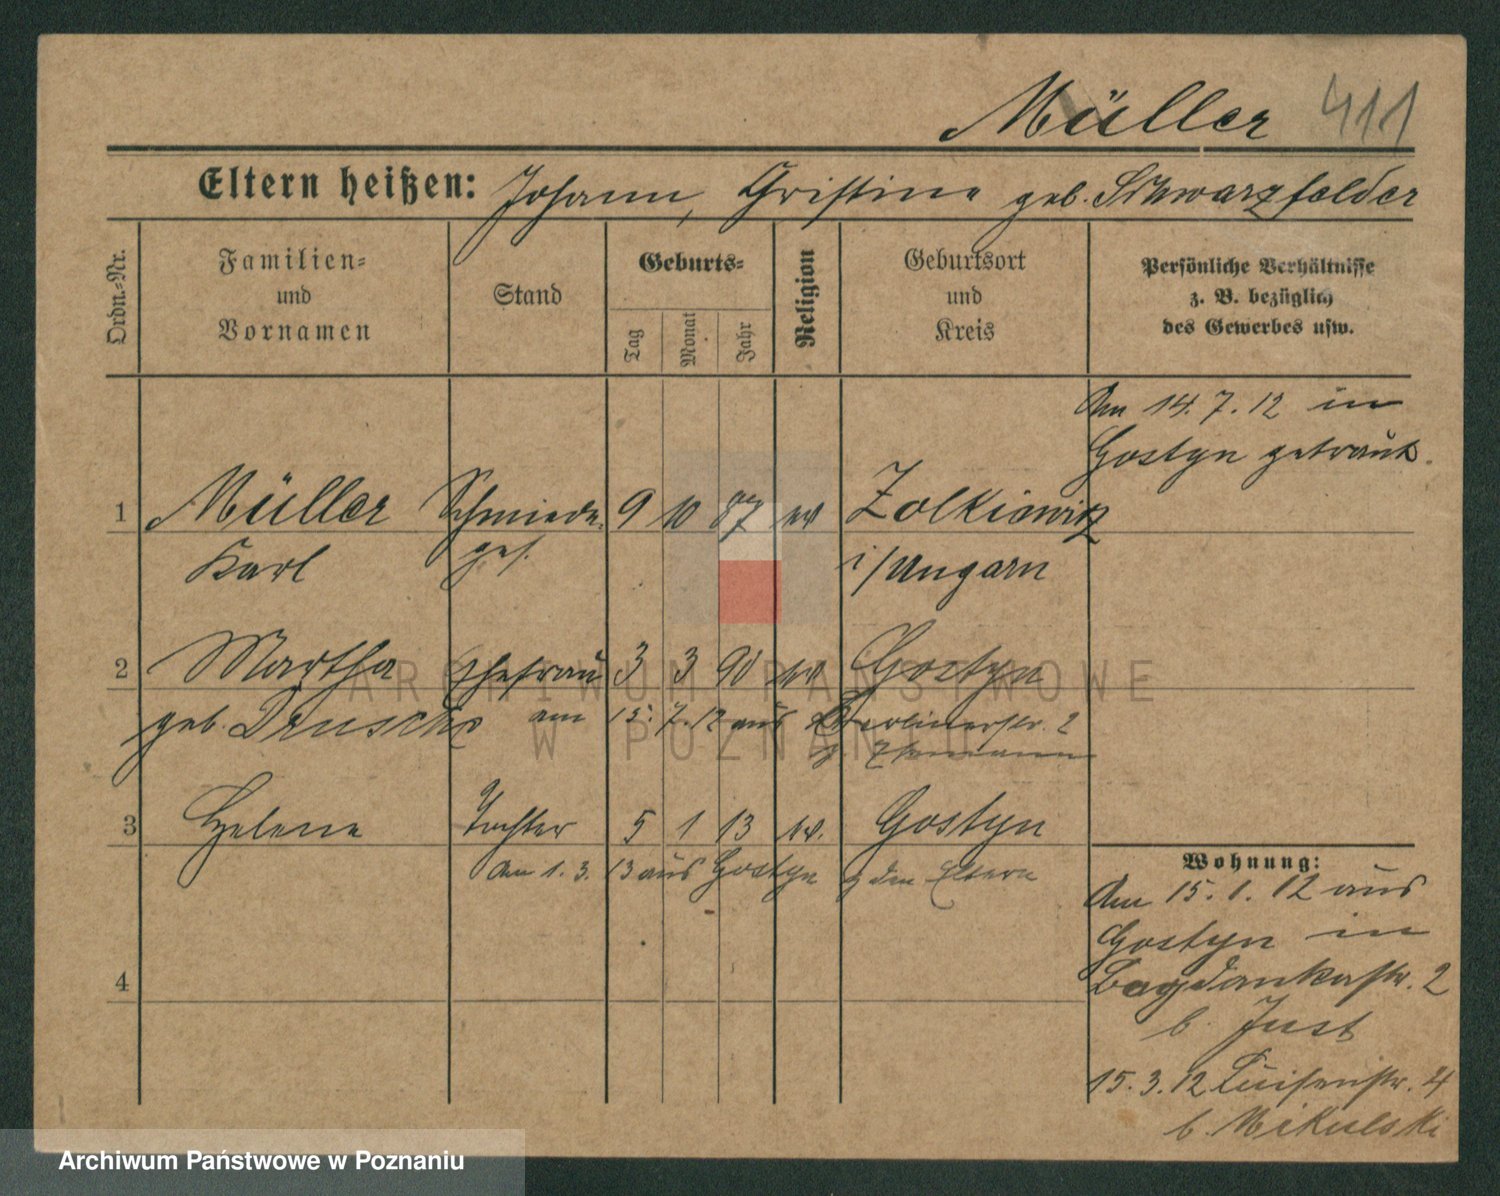 Müller 411
Eltern heißen: Johann, Gristine geb. Schwarzfelder
Ordn.-Nr.
Familien-
und
Vornamen
Stand
Geburts-
Tag
Monat
Jahr
Religion
Geburtsort
und
Kreis
Persönliche Verhältnisse
z. B. bezüglich
des Gewerbes usw.
Am 14. 7. 12 in
Gostyn getraut.
1 Müller Schmiede- 9 10 87 ev Zolkiewicz
Karl ges. i/Ungarn
2 Martha Ehefrau 3 3 90 ev Gostyn
geb. am 15. 7. 12 aus Berlinerstr. 2
z. Ehemann
3 Helene Tochter 5 1 13 ev. Gostyn
Am 1. 3. 13 aus Gostyn z den Eltern
4
Wohnung:
Am 15. 1. 12 aus
Gostyn in
Bogdankastr. 2
b. Just
15. 3. 12 Luisenstr. 4
b. Mikulski
ARCHIWUM PAŃSTWOWE
W POZNANIU
Archiwum Państwowe w Poznaniu